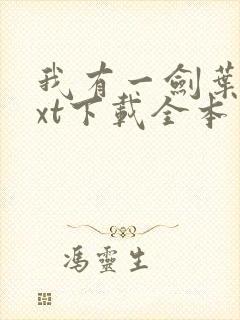 我有一劍葉
xt下載全本
馮靈生